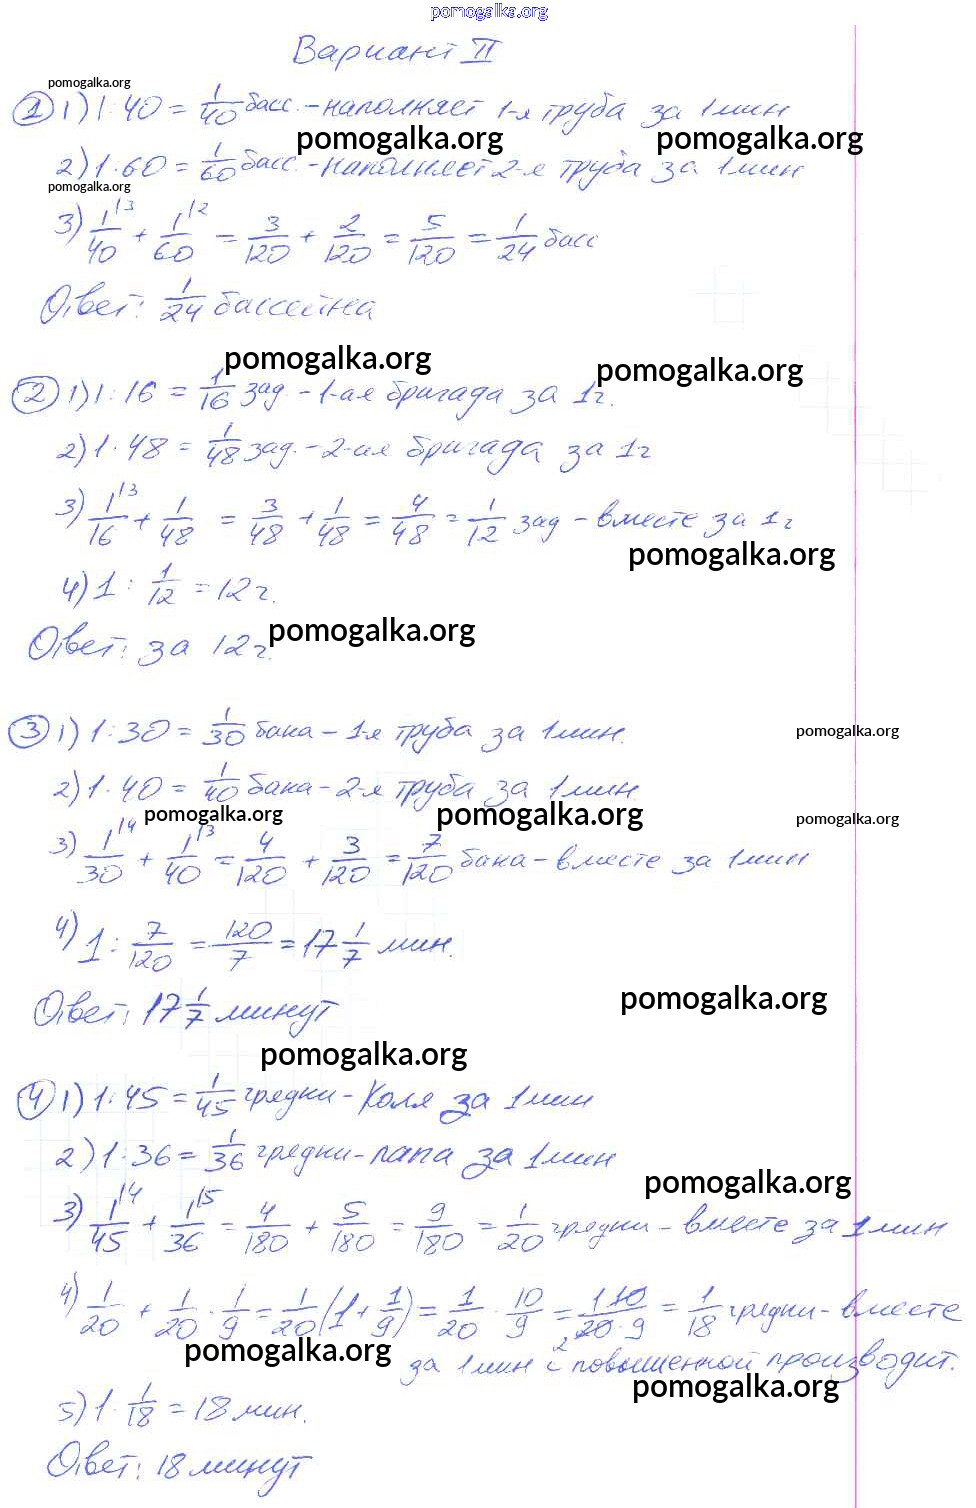 pomogalka.org
Вариант II
pomogalka.org
① 1) 1:40 = 1/40 басс. - наполняет 1-я труба за 1 мин
pomogalka.org pomogalka.org
2) 1:60 = 1/60 басс. - наполняет 2-я труба за 1 мин
pomogalka.org
3) 1/40 \3 + 1/60 \2 = 3/120 + 2/120 = 5/120 = 1/24 басс
Ответ: 1/24 бассейна
pomogalka.org pomogalka.org
② 1) 1:16 = 1/16 зад. - 1-ая бригада за 1 г.
2) 1:48 = 1/48 зад. - 2-ая бригада за 1 г
3) 1/16 \3 + 1/48 = 3/48 + 1/48 = 4/48 = 1/12 зад - вместе за 1 г
pomogalka.org
4) 1 : 1/12 = 12 г.
Ответ: за 12 г.
pomogalka.org
③ 1) 1:30 = 1/30 бака - 1-я труба за 1 мин.
pomogalka.org
2) 1:40 = 1/40 бака - 2-я труба за 1 мин.
pomogalka.org pomogalka.org pomogalka.org
3) 1/30 \4 + 1/40 \3 = 4/120 + 3/120 = 7/120 бака - вместе за 1 мин
4) 1 : 7/120 = 120/7 = 17 1/7 мин.
Ответ: 17 1/7 минут
pomogalka.org
pomogalka.org
④ 1) 1:45 = 1/45 грядки - Коля за 1 мин
2) 1:36 = 1/36 грядки - папа за 1 мин
pomogalka.org
3) 1/45 \4 + 1/36 \5 = 4/180 + 5/180 = 9/180 = 1/20 грядки - вместе за 1 мин
4) 1/20 + 1/20 · 1/9 = 1/20 (1 + 1/9) = 1/20 · 10/9 = 1·10/20·9 2 = 1/18 грядки - вместе
pomogalka.org
за 1 мин с повышенной производит.
pomogalka.org
5) 1 : 1/18 = 18 мин.
Ответ: 18 минут